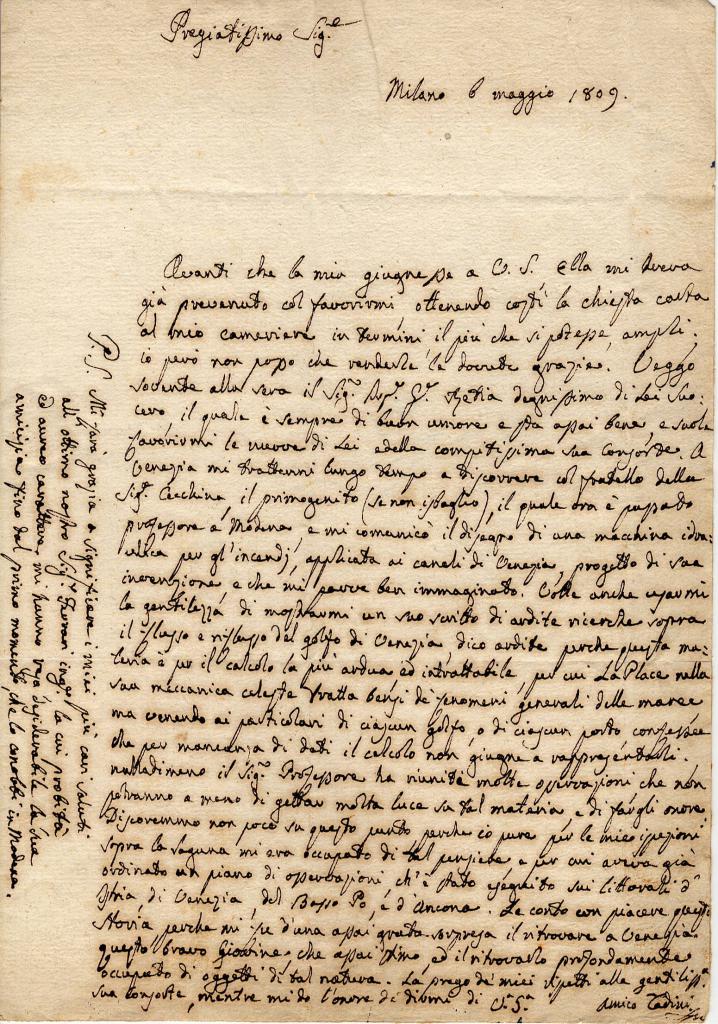 Pregiatissimo Sig.e
Milano 6 maggio 1809.
Avanti che la mia giugnesse a V. S. Ella mi aveva
già prevenuto col favorirmi, ottenendo costì la chiesta carta
al mio cameriere in termini il più che si potesse, ampli.
io però non posso che renderle le dovute grazie. Veggo
sovente alla sera il Sig.r degnissimo di Lei Suo-
cero il quale è sempre di buon umore e sta assai bene e suole
favorirmi le nuove di Lei e della compitissima sua Consorte. A
Venezia mi trattenni lungo tempo a discorrere col fratello della
Sig.a Cecchina il primogenito (se non isbaglio), il quale ora è passato
professore a Modena, e mi comunicò il disegno di una macchina idrau-
lica per gl'incendj, applicata ai canali di Venezia, progetto di sua
invenzione e che mi parve ben immaginato. Volle anche usarmi
la gentilezza di mostrarmi un suo scritto di ardite ricerche sopra
il flusso e riflusso del golfo di Venezia dico ardite perche questa ma-
teria è per il calcolo la più ardua ed intrattabile, per cui La Place nella
sua meccanica celeste tratta bensì de' fenomeni generali delle maree
ma venendo ai particolari di ciascun golfo, o di ciascun porto confessa
che per mancanza di dati il calcolo non giugne a rappresentarli.
nulladimeno il Sig.r Professore ha riunite molte osservazioni che non
potranno a meno di gettar molta luce su tal materia e di fargli onore.
Discoremmo non poco su questo punto perche io pure per le mie ispezioni
sopra la laguna mi era occupato di tal pensiere e per cui aveva già
ordinato un piano di osservazioni ch'è stato eseguito sui littorali d'
Istria di Venezia, del Basso Po, e d'Ancona. Le conto con piacere questa
storia perche mi fu d'una assai grata sorpresa il ritrovare a Venezia
questo bravo Giovine che assai stimo ed il ritrovarlo profondamente
occupato di oggetti di tal natura. La prego de' miei rispetti alla gentiliss.a
sua consorte, mentre mi do l'onore di dirmi di V.a S.a
Amico Tadini
P. S. Mi farà grazia a significare i miei più cari saluti
all'ottimo nostro Sig.r Ferrari ing.e la cui probità
ed aureo carattere mi hanno reso desiderabile la sua
amicizia fino dal primo momento che lo conobbi in Modena.